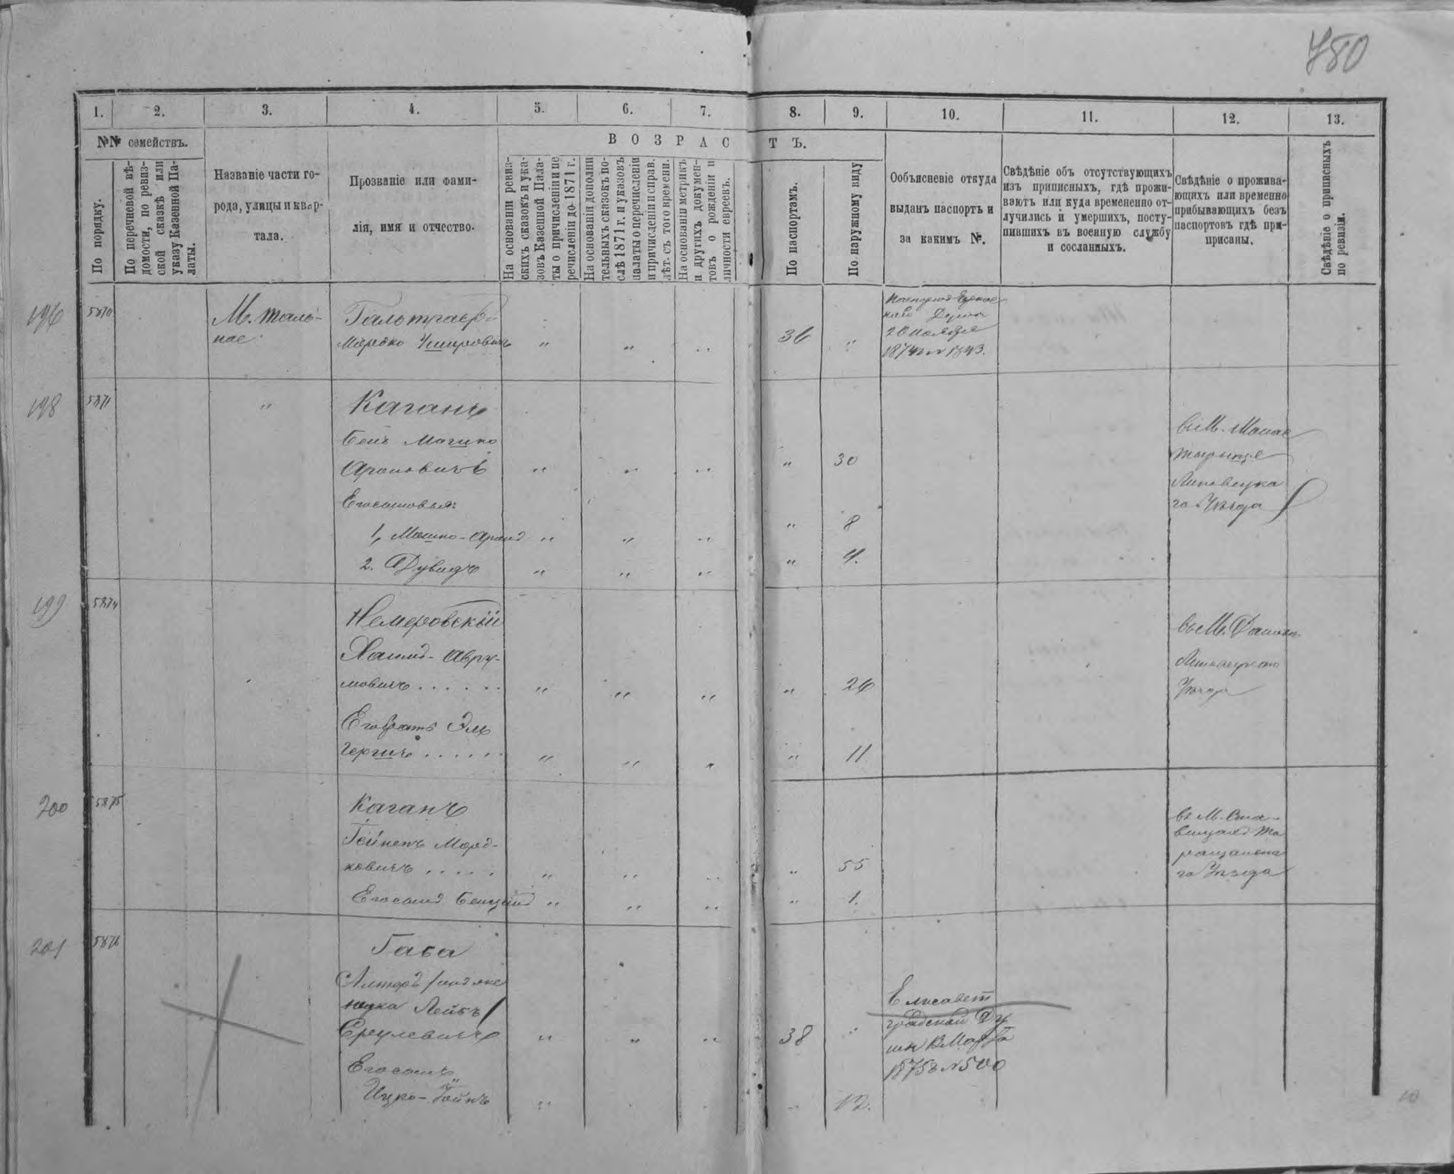 780
1.
2.
3.
4.
5.
6.
7.
8.
9.
10.
11.
12.
13.
№№ семействъ.
ВОЗРАС
ТЪ.
По порядку.
По перечневой вѣ-
домости, по ревиз-
ской сказкѣ или
указу Казенной Па-
латы.
Названіе части го-
рода, улицы и квар-
тала.
Прозваніе или фами-
лія, имя и отчество.
На основаніи ревиз-
скихъ сказокъ и ука-
зовъ Казенной Пала-
ты о причисленіи и пе
речисленіи до 1871 г.
На основаніи дополни
тельныхъ сказокъ по-
слѣ 1871 г. и указовъ
палаты о перечисленіи
и причисленіи и справ.
лѣт. съ того времени.
На основаніи метрикъ
и другихъ докумен-
товъ о рожденіи и
личности евреевъ.
По паспортамъ.
По наружному виду
Объясненіе откуда
выданъ паспортъ и
за какимъ №.
Свѣдѣніе объ отсутствующихъ
изъ приписныхъ, гдѣ прожи-
ваютъ или куда временно от-
лучились и умершихъ, посту-
пившихъ въ военную службу
и сосланныхъ.
Свѣдѣніе о прожива-
ющихъ или временно
прибывающихъ безъ
паспортовъ гдѣ при-
приcаны.
Свѣдѣніе о приписныхъ
по ревизіи.
196
5870
М. Таль-
ное
Мордко
36
20 Ноября
1874 г № 1843.
198
5871
"
Каганъ
Бенъ Мошко
Ароновичъ
30
Егосыновья:
1, Мошко-Аронъ
8
2. Дувидъ
4.
въ М. Монас
тырище
Липовецка
го Уѣзда
199
5874
Немеровскій
Хаимъ-Авру-
мовичъ
26
Егобратъ Эль
Гершъ
11
въ М. Дашевъ
Липовецкаго
Уѣзда
200
5875
Каганъ
Морд-
ковичъ
55
Егосынъ Бенціонъ
1.
въ М. Ста-
вищахъ Та
ращанска
го Уѣзда
201
5876
Габа
Лейбъ
Срулевичъ
38
Егосынъ
Ицко-
12.
Елисавет
градской Ду
мы 8 Марта
1875 г № 500